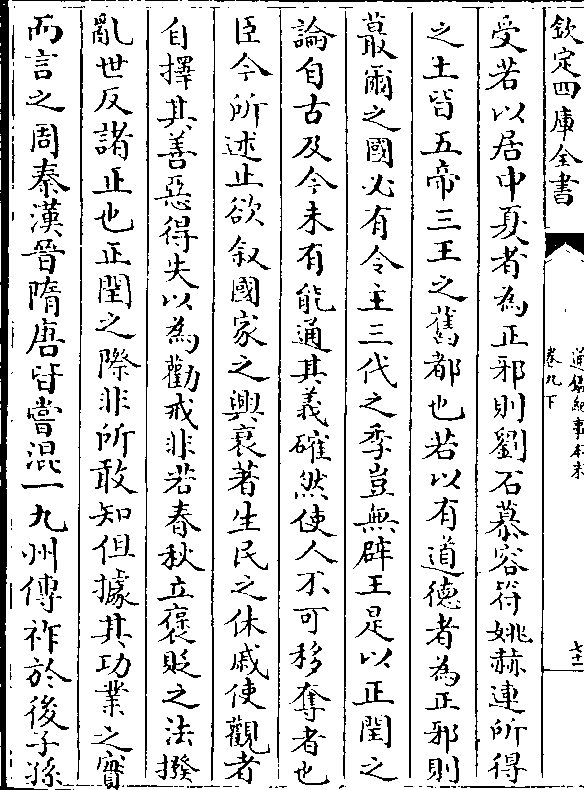 欽定四庫全書
通鑑紀事本末
卷九下
七十二
受若以居中夏者為正邪則劉石慕容苻姚赫連所得
之土皆五帝三王之舊都也若以有道德者為正邪則
蕞爾之國必有令主三代之季豈無辟王是以正閏之
論自古及今未有能通其義確然使人不可移奪者也
臣今所述止欲叙國家之興衰著生民之休戚使觀者
自擇其善惡得失以為勸戒非若春秋立褒貶之法撥
亂世反諸正也正閏之際非所敢知但據其功業之實
而言之周秦漢晉隋唐皆嘗混一九州傳祚於後子孫